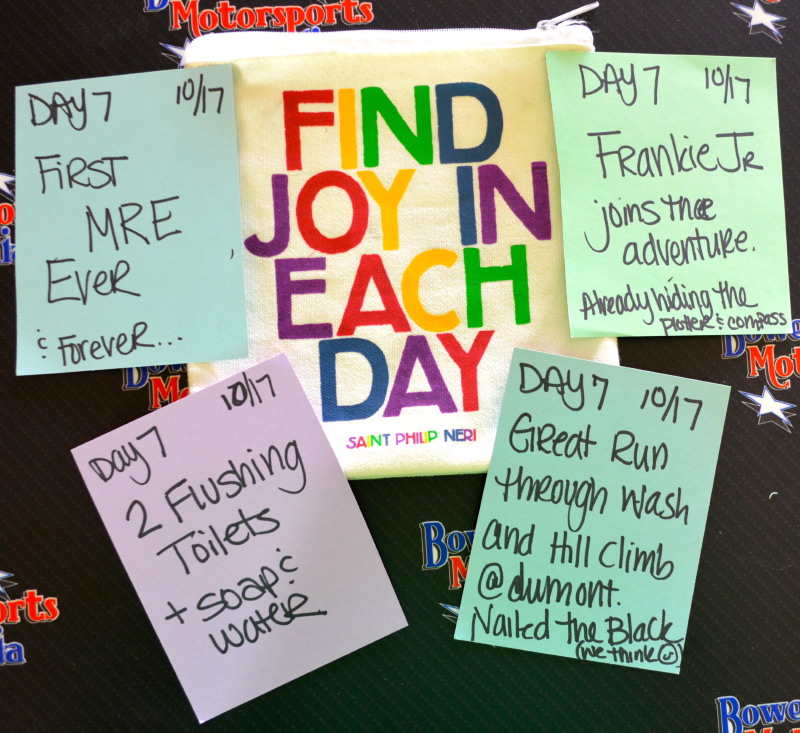 Bower
Motorsports
FIND
JOY IN
EACH
DAY
SAINT PHILIP NERI
DAY 7 10/17
FIRST
MRE
EVER
& FOREVER...
DAY 7 10/17
FRANKIE JR
joins the
adventure.
Already hiding the
plotter & compass
Day 7 10/17
2 Flushing
Toilets
+ soap &
water
DAY 7 10/17
GREAT RUN
through Wash
and Hill Climb
@dumont.
Nailed the Black
(we think)
orts
ia
Bowe
Mot
Bowe
Moto